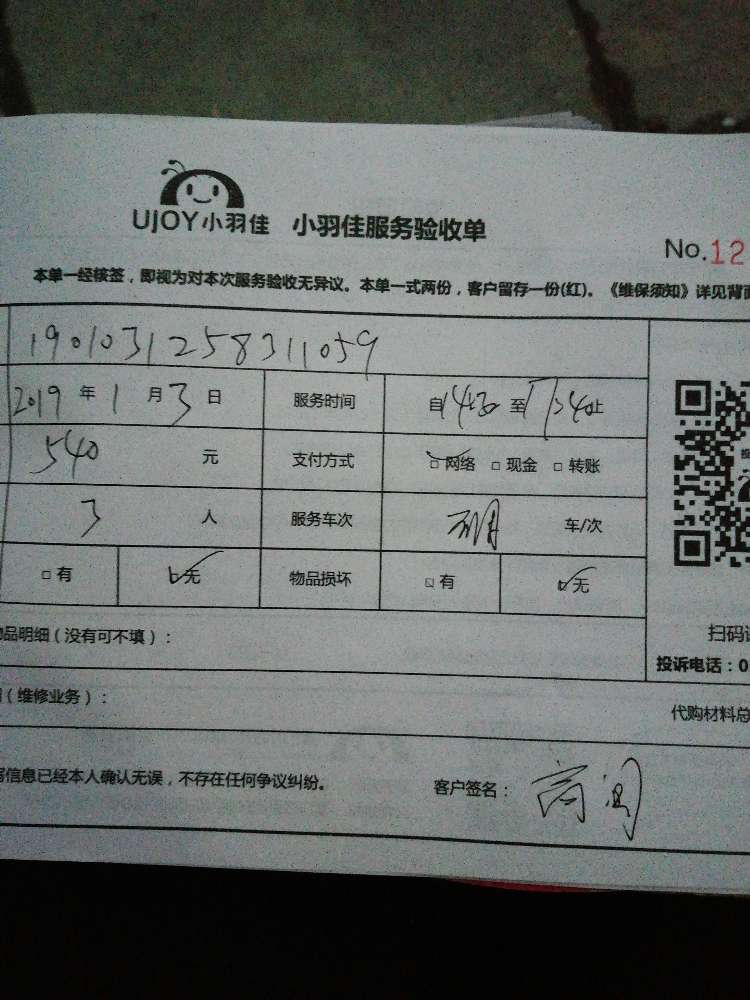 UJOY小羽佳 小羽佳服务验收单
No.12
本单一经核签，即视为对本次服务验收无异议。本单一式两份，客户留存一份(红)。《维保须知》详见背面
1901031258311059
2019 年 1 月 3 日 服务时间 自 至 止
540 元 支付方式 □网络 □现金 □转账
3 人 服务车次 车/次
□有 □无 物品损坏 □有 □无
品明细（没有可不填）：
扫码
投诉电话：0
（维修业务）：
代购材料总
信息已经本人确认无误，不存在任何争议纠纷。 客户签名：